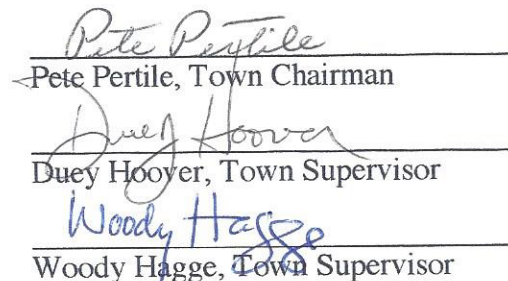 Pete Pertile
Pete Pertile, Town Chairman
Duey Hoover
Duey Hoover, Town Supervisor
Woody Hagge
Woody Hagge, Town Supervisor